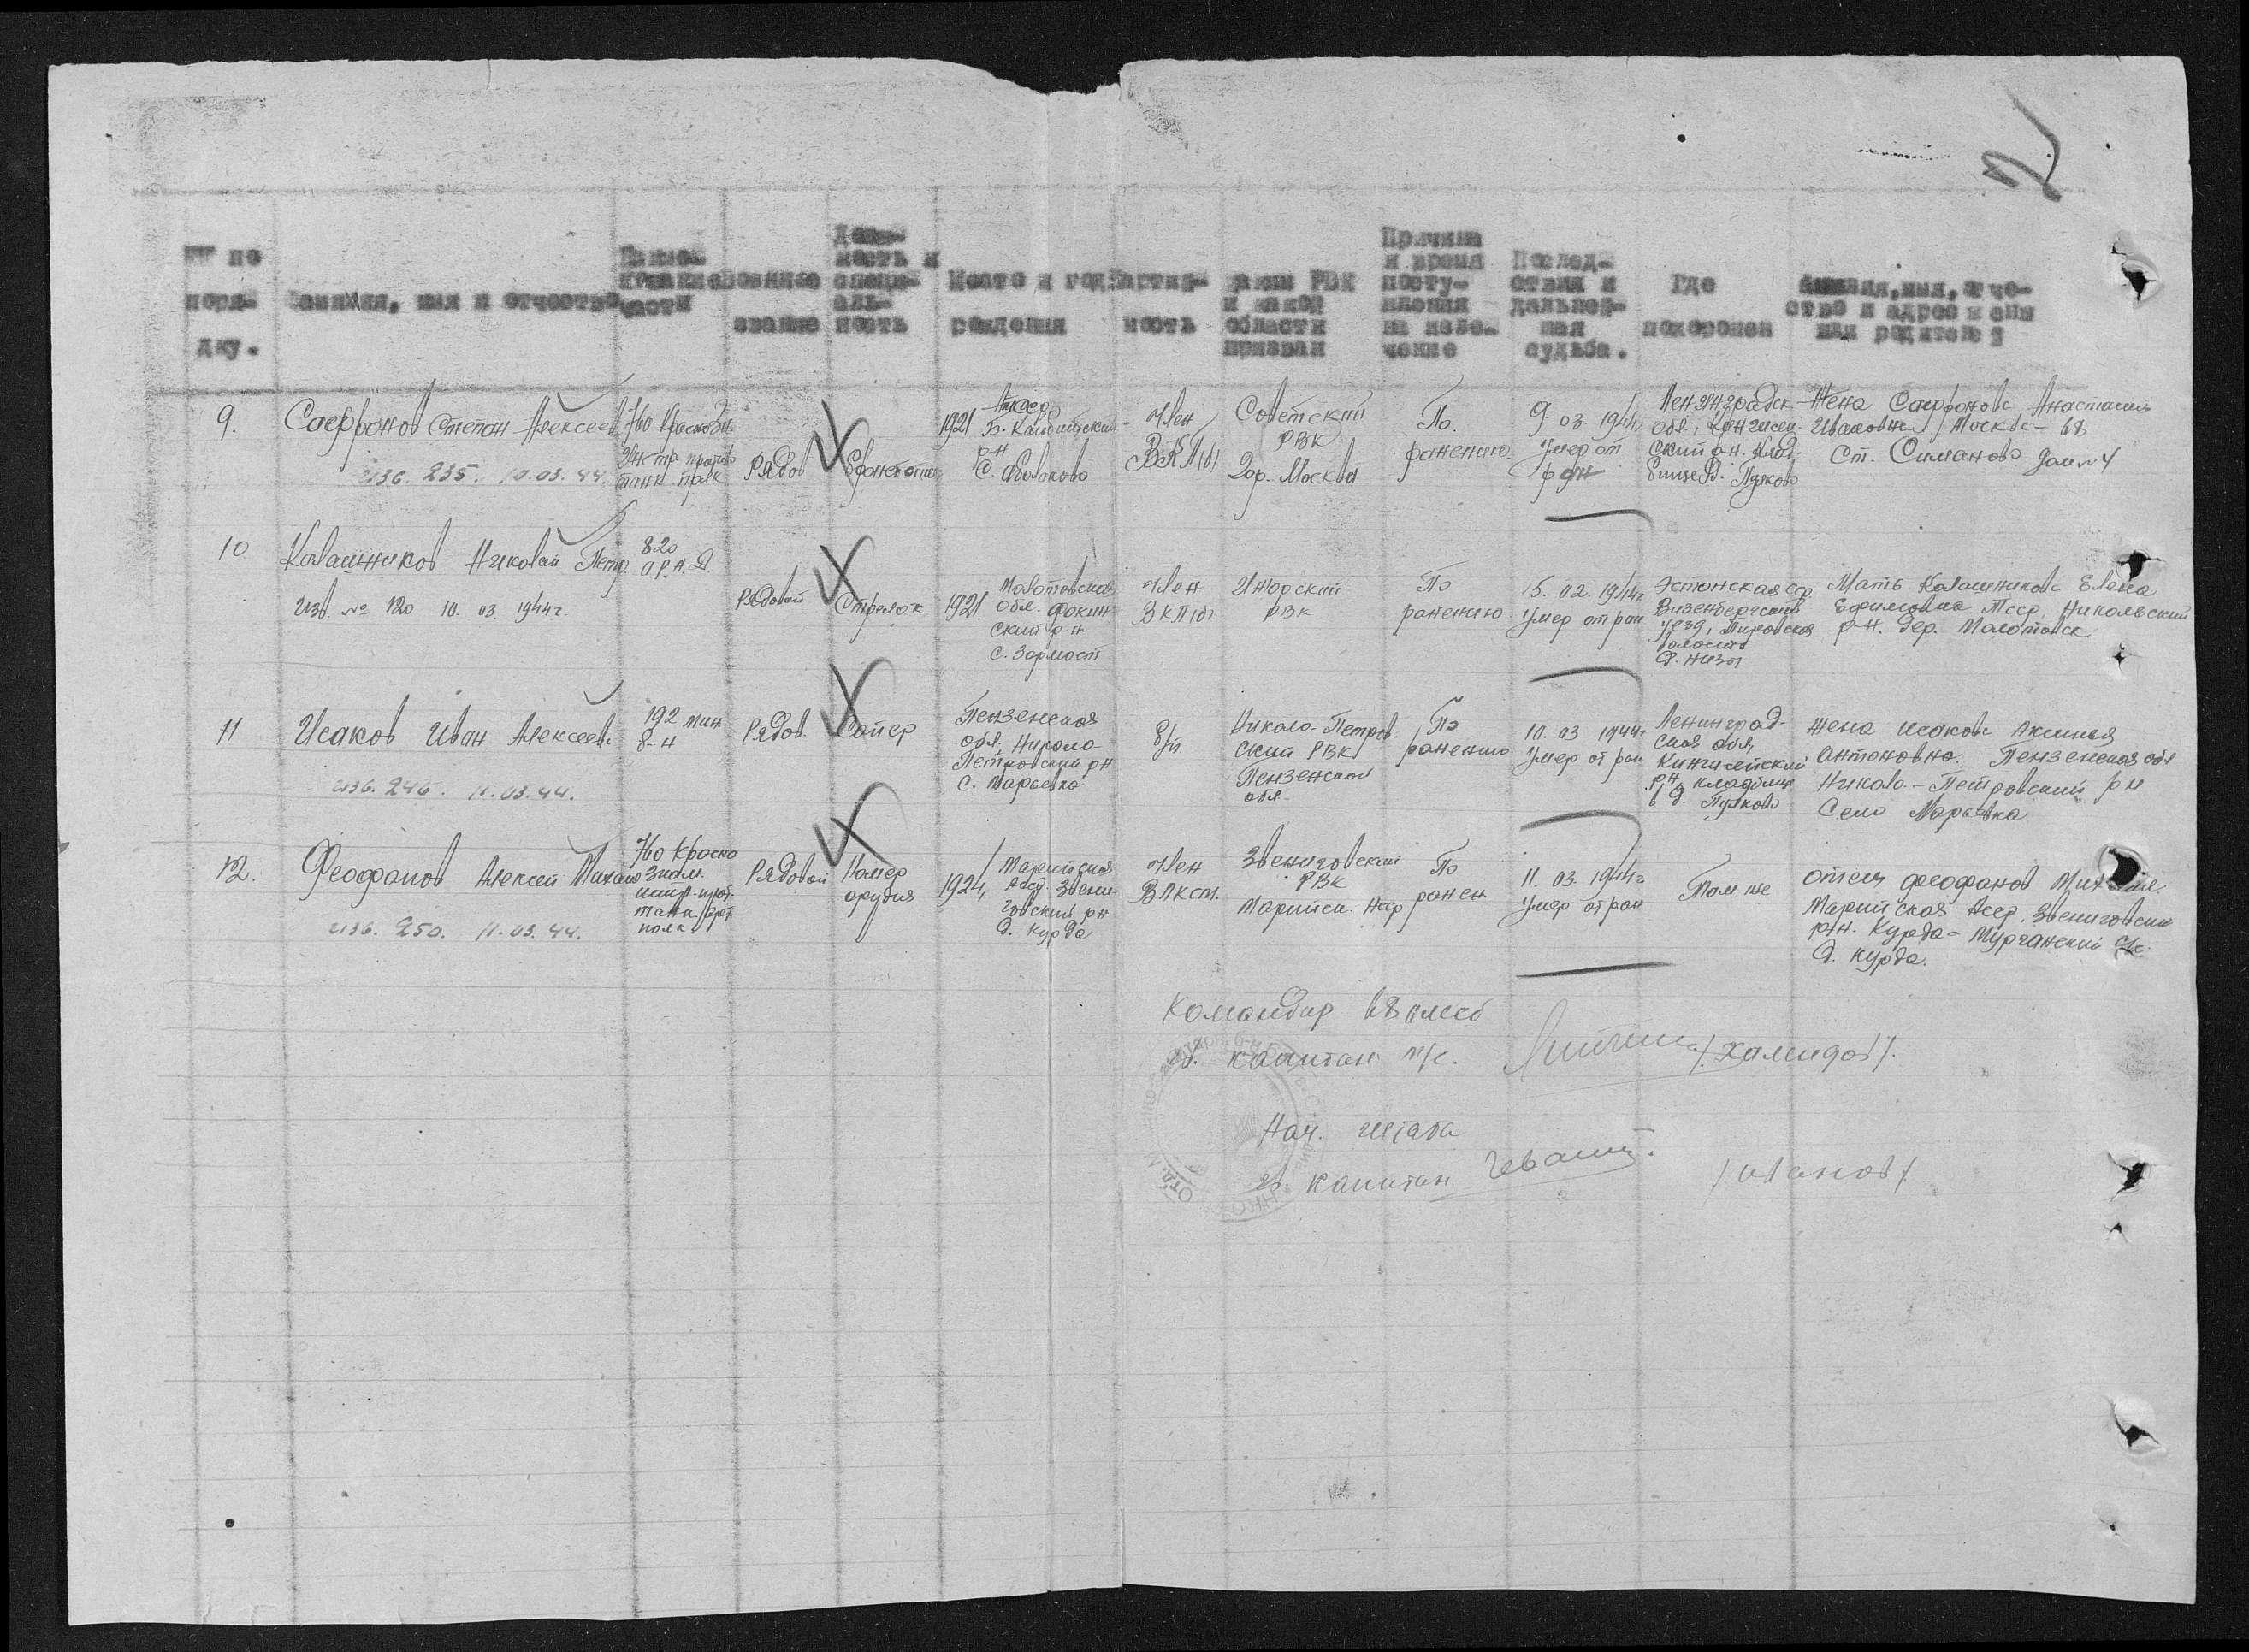 №№ по
поряд-
дку.
Фамилия, имя и отчество
Наиме-
нование
части
Военное
звание
Долж-
ность и
специ-
аль-
ность
Место и год
рождения
Партий-
ность
Каким РВК
и какой
области
призван
Причина
и время
посту-
пления
на изле-
чение
Послед-
ствия и
дальней-
шая
судьба.
Где
похоронен
Фамилия, имя, отче-
ство и адрес жены
или родителей
9.
Саффронов Степан Алексеев
изв. 235. 10.03.44.
760 Краснозн.
танк. полк
Рядов
1921
р-н
Член
ВКП(б)
Советский
РВК
гор. Москва
По
ранению
9.03.1944г
Умер от
ран
Ленинградск
обл.
Пулково
Жена Саффронова Анастасия
Ивановна Москва - 68
ст. Симаново дом №4
10
Калашников Николай Петр.
Изв. № 120 10.03.1944г.
820
Рядовой
Стрелок
1921
Молотовская
обл. Фокин
ский р-н
Член
ВКП(б)
Ижорский
РВК
По
ранению
15.02.1944г
Умер от ран
Эстонская сср
Везенбергский
уезд,
волость
Мать Калашникова Елена
Ефимовна
Никольский
р-н. дер.
11
Исаков Иван Алексеев.
изв. 246. 11.03.44.
192 мин
б-н
Рядов.
Сапер
Пензенская
обл. Николо-
Петровский р-н
с. Марьевка
б/п
Николо-Петров.
ский РВК
Пензенской
обл.
По
ранению
10.03 1944г
Умер от ран
Ленинград-
ская обл.
Кингисепский
р-н, кладбище
в д. Пулково
Жена Исакова Аксинья
Антоновна. Пензенская обл
Николо-Петровский р-н
Село Марьевка
12.
Феофанов Алексей Михайло
изв. 250. 11.03.44.
760 Красно
знам.
истр. прот.
танк. арт.
полк
Рядовой
Номер
орудия
1924,
Марийская
Асср Звени-
говский р-н
д. Курда
Член
ВЛКСМ.
Звениговский
РВК
Марийск. Асср
По
ранен
11.03.1944г
Умер от ран
Там же
отец Феофанов Михаил
Марийская Асср. Звениговский
р-н. Курда-
д. Курда.
Командир 68 омсб
капитан м/с. /Хамидов/.
Нач. штаба
капитан /Иванов/